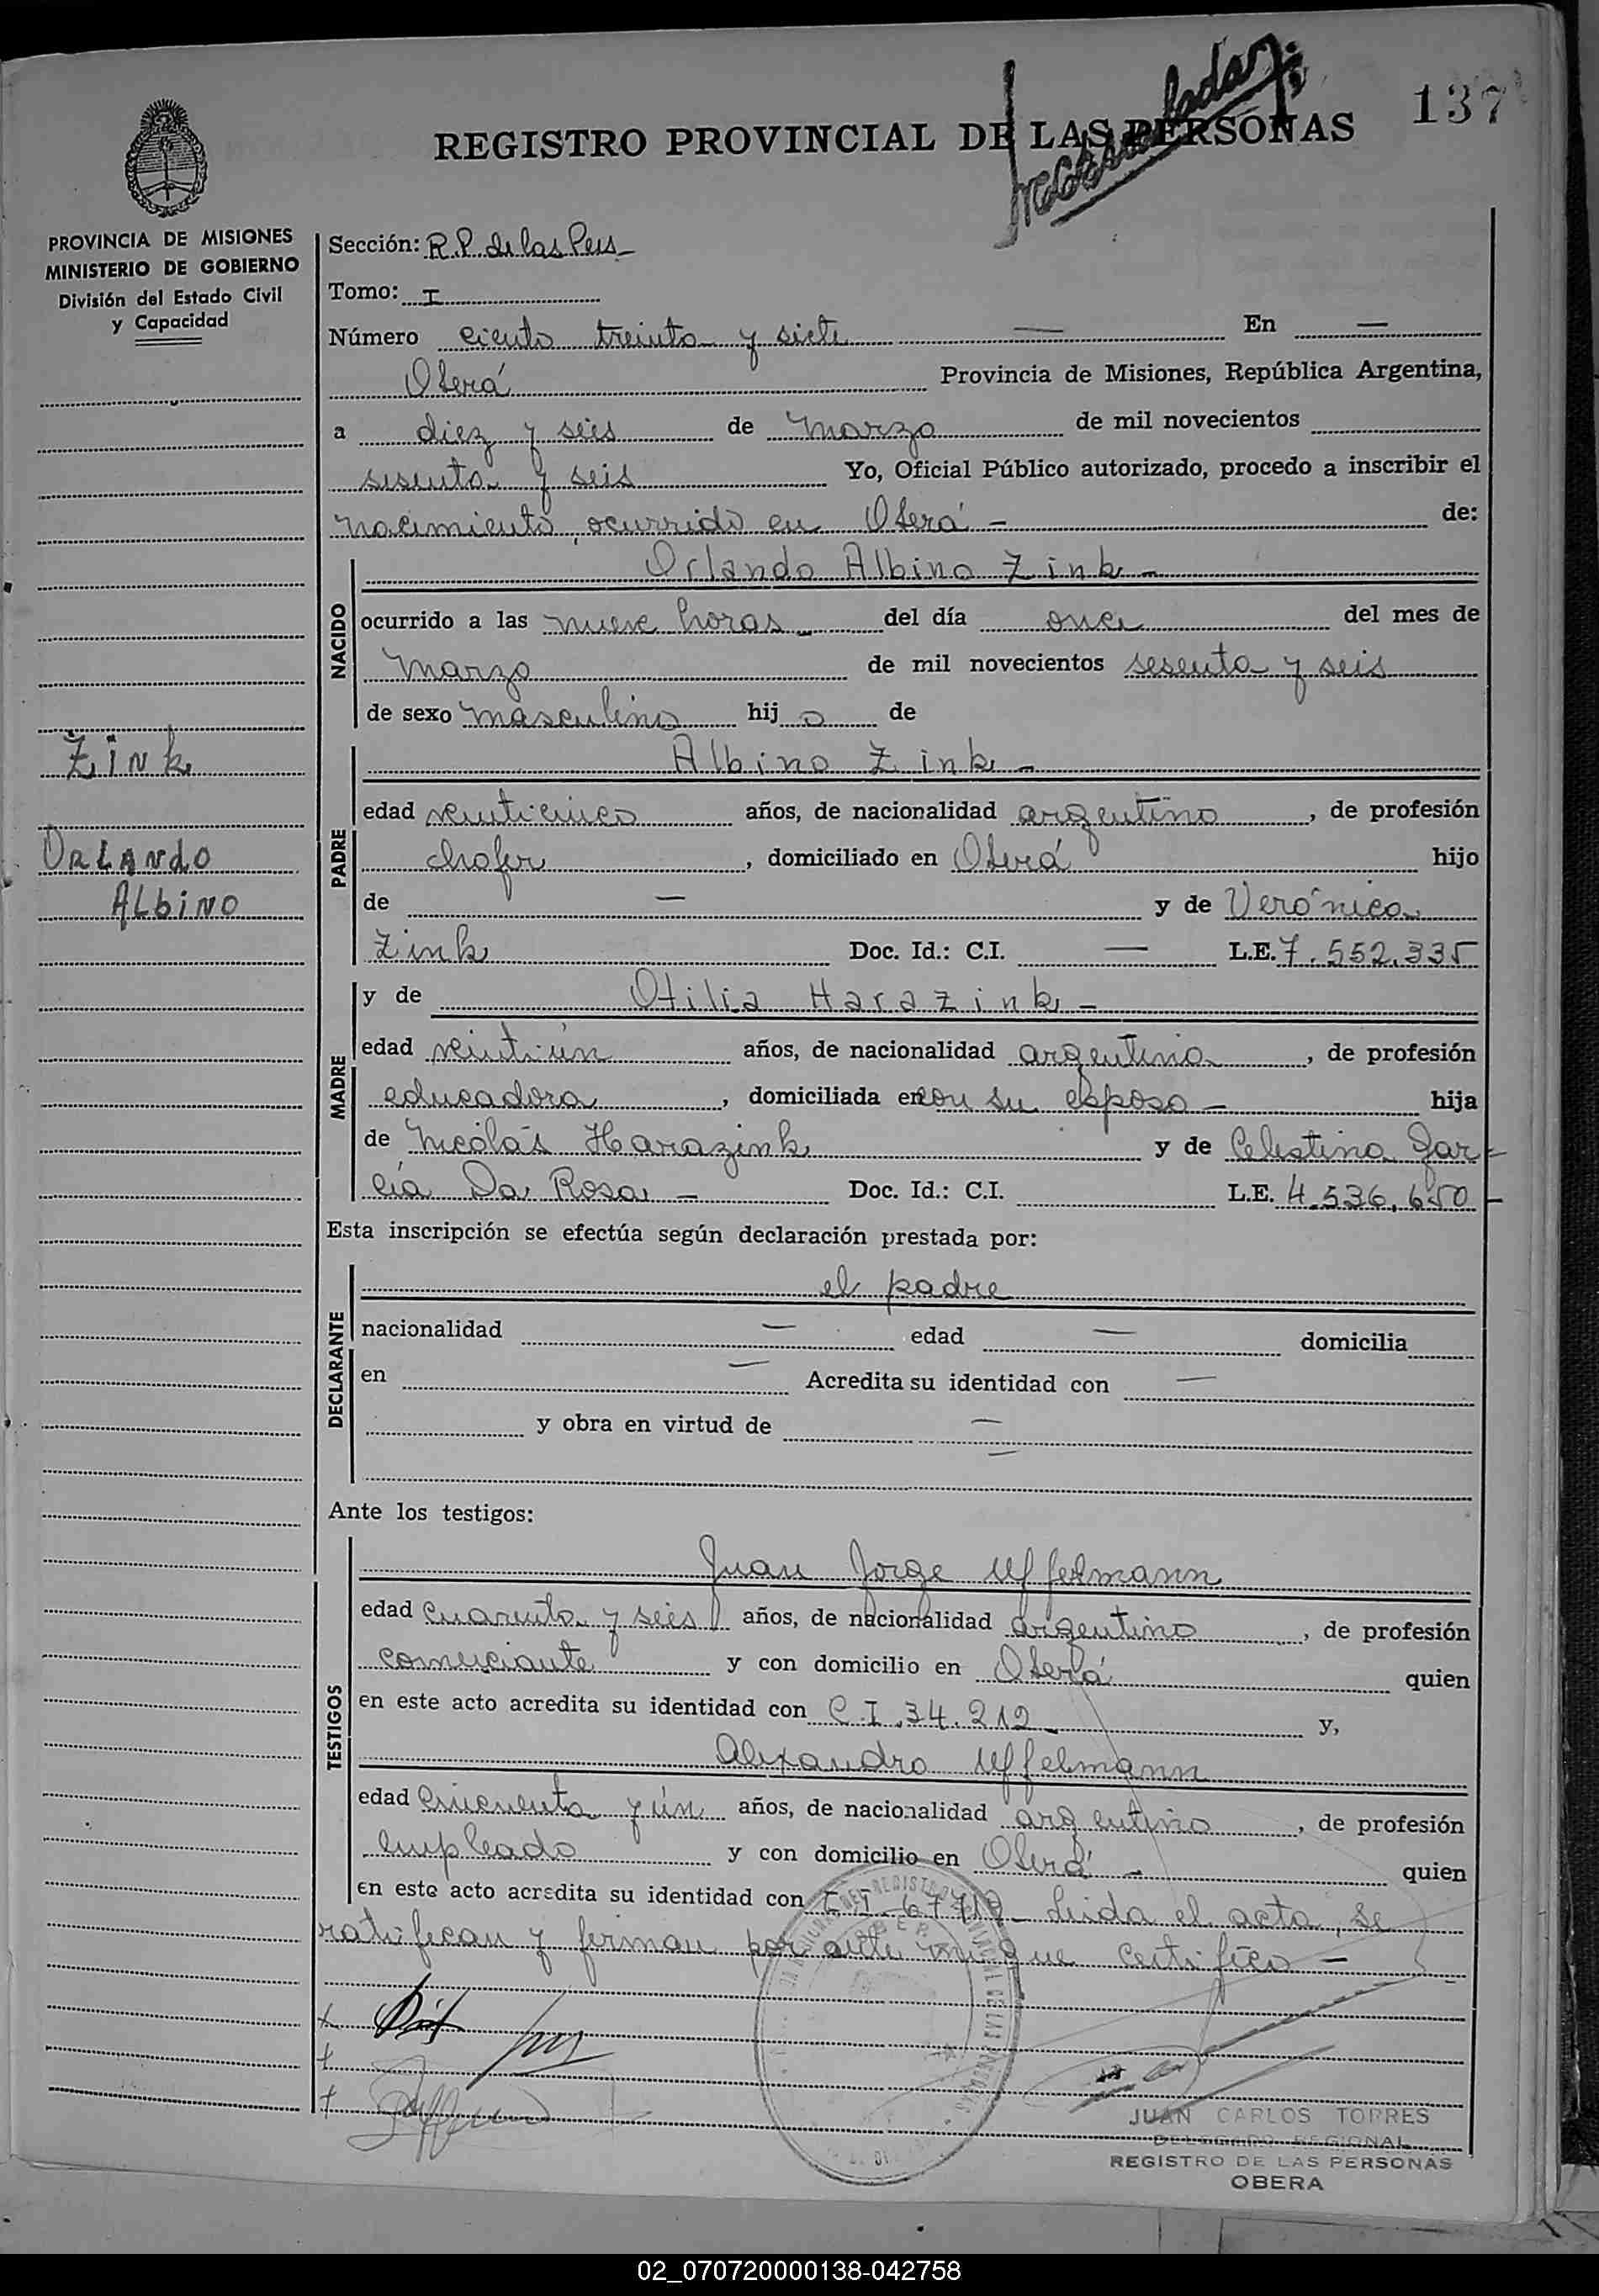 137
REGISTRO PROVINCIAL DE LAS PERSONAS
PROVINCIA DE MISIONES
MINISTERIO DE GOBIERNO
División del Estado Civil
y Capacidad
Sección: R.P. de las Pers
Tomo: I
Número ciento treinta y siete — En —
Oberá Provincia de Misiones, República Argentina,
a diez y seis de Marzo de mil novecientos
sesenta y seis Yo, Oficial Público autorizado, procedo a inscribir el
nacimiento, ocurrido en Oberá - de:
NACIDO
Orlando Albino Zink -
ocurrido a las nueve horas del día once del mes de
Marzo de mil novecientos sesenta y seis
de sexo masculino hij o de
Zink
Orlando
Albino
PADRE
Albino Zink -
edad veinticinco años, de nacionalidad argentino, de profesión
chofer, domiciliado en Oberá hijo
de — y de Verónica
Zink Doc. Id.: C.I. — L.E. 7.552.335
MADRE
y de Otilia Harazink -
edad veintiún años, de nacionalidad argentina, de profesión
educadora, domiciliada en con su esposo - hija
de Nicolás Harazink y de Celestina Gar-
cía Da Rosa - Doc. Id.: C.I. L.E. 4.536.650 -
Esta inscripción se efectúa según declaración prestada por:
DECLARANTE
el padre
nacionalidad — edad — domicilia
en — Acredita su identidad con —
y obra en virtud de —
—
Ante los testigos:
TESTIGOS
Juan Jorge Uffelmann
edad cuarenta y seis años, de nacionalidad argentino, de profesión
comerciante y con domicilio en Oberá quien
en este acto acredita su identidad con C.I. 34.212 - y,
Alexandro Uffelmann
edad cincuenta y ún años, de nacionalidad argentino, de profesión
empleado y con domicilio en Oberá - quien
en este acto acredita su identidad con Leida el acta, se
ratifican y firman por ante mi que certifico -
JUAN CARLOS TORRES
DELEGADO REGIONAL
REGISTRO DE LAS PERSONAS
OBERA
02_070720000138-042758